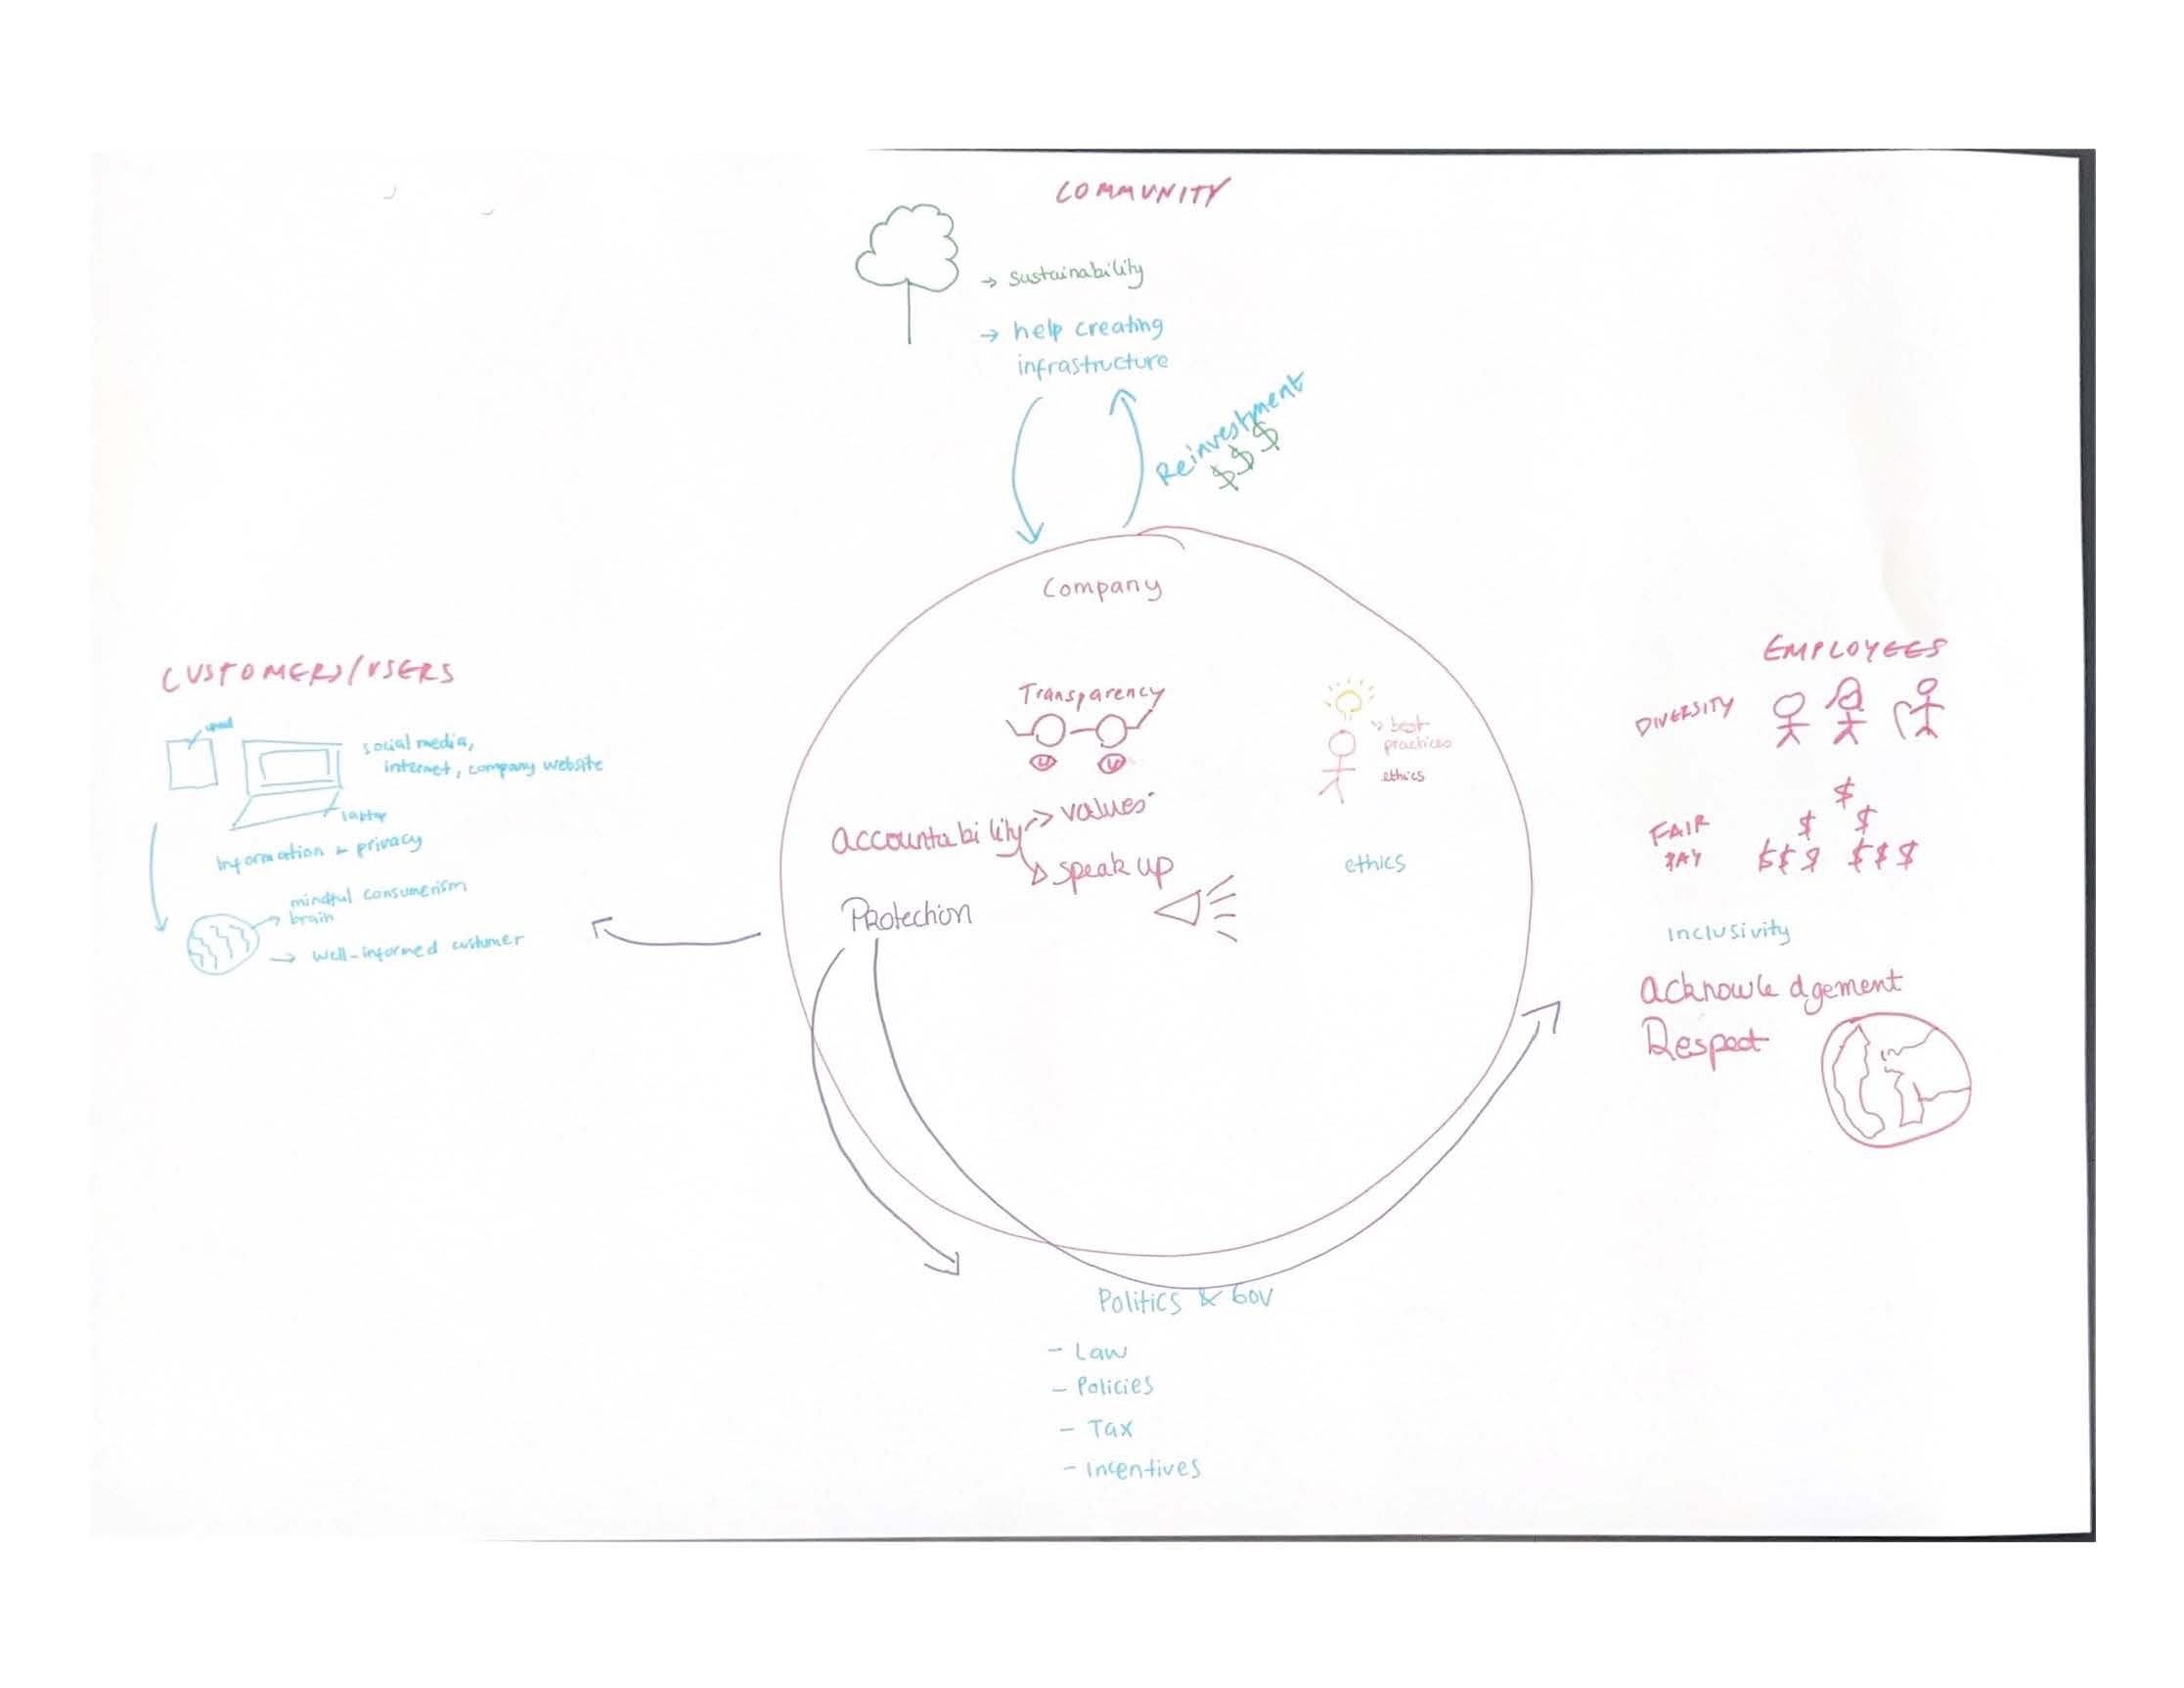 COMMUNITY
→ sustainability
→ help creating
infrastructure
Reinvestment
$$$
Company
Transparency
best
practices
ethics
Accountability → values
→ speak up
ethics
Protection
CUSTOMERS/USERS
social media,
internet, company website
laptop
Information & privacy
mindful consumerism
brain
→ well-informed customer
EMPLOYEES
DIVERSITY
$
$ $
FAIR
PAY
$$$ $$$
Inclusivity
Acknowledgement
Respect
Politics & Gov
- Law
- Policies
- Tax
- Incentives